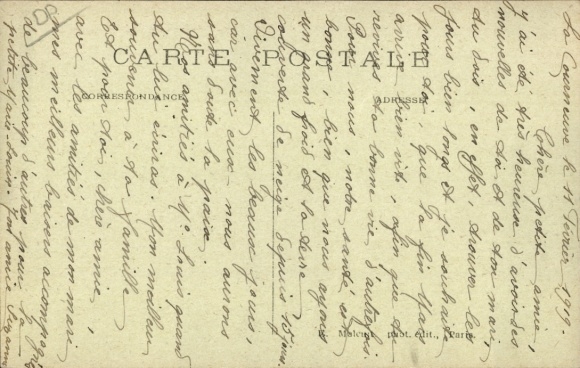 CARTE POSTALE
CORRESPONDANCE
ADRESSE
La Courneuve le 11 Février 1919.
Chère petite amie,
J'ai été très heureuse d'avoir des
nouvelles de toi et de ton mari,
tu dois, en effet, trouver les
jours bien longs et je souhaite
pour toi que la fin
arrive bien vite, afin que tu
revives ta bonne vie d'autrefois.
Pour nous, notre santé est
bonne, bien que nous ayons
un grand froid et la terre
couverte de neige depuis 15 jours.
Vivement les beaux jours,
car avec eux nous aurons
sans doute la paix.
Mes amitiés à Mr Louis quand
tu lui écriras. Mon meilleur
souvenir à ta famille
Et pour toi, chère amie,
avec les amitiés de mon mari
mes meilleurs baisers accompagnés
de beaucoup d'autres pour ta
petite Ton amie
Malcuit, phot. édit., Paris.